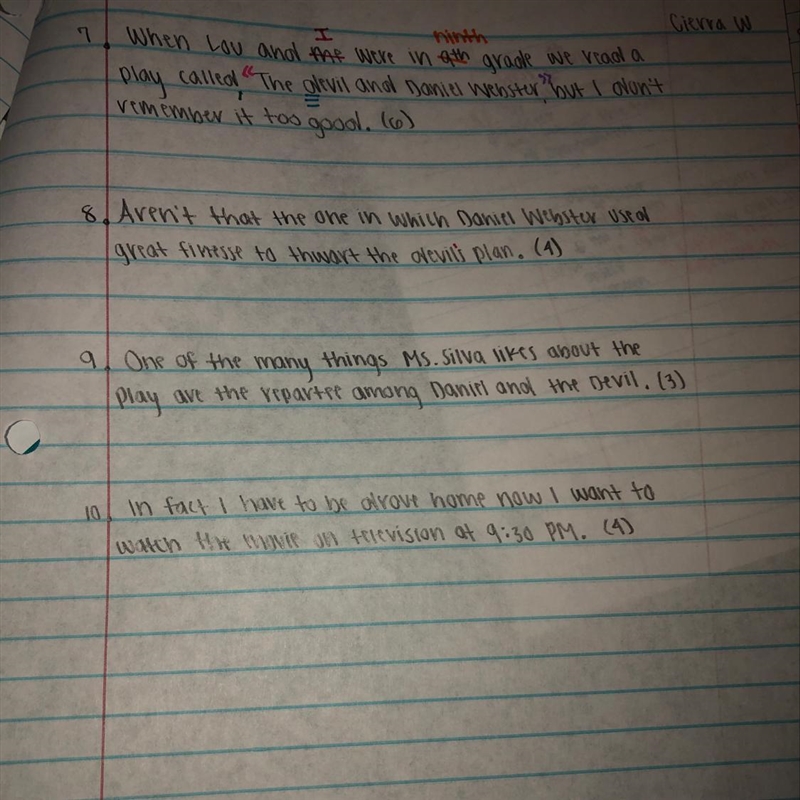 Cierra W
I ninth
7. When Lou and me were in 9th grade we read a
play called, "The devil and Daniel Webster", but I don't
remember it too good. (6)
8. Aren't that the one in which Daniel Webster used
great finesse to thwart the devil's plan. (4)
9. One of the many things Ms. Silva likes about the
play are the repartee among Daniel and the Devil. (3)
10. In fact I have to be drove home now I want to
watch the movie on television at 9:30 PM. (4)